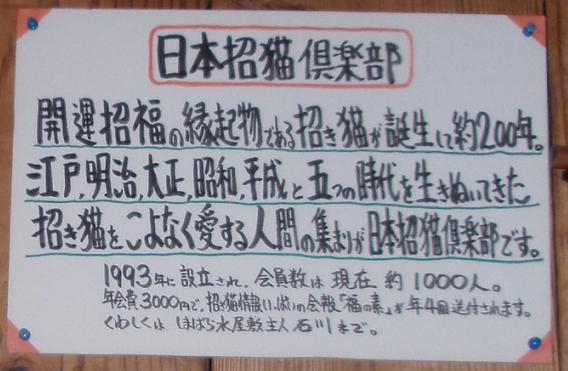 日本招猫倶楽部
開運招福の縁起物である招き猫が誕生して約200年。
江戸,明治,大正,昭和,平成と五つの時代を生きぬいてきた
招き猫をこよなく愛する人間の集まりが日本招猫倶楽部です。
1993年に設立され、会員数は現在約1000人。
年会費3000円で、招き猫情報いっぱいの会報「福の素」が年4回送付されます。
くわしくはしまばら水屋敷主人石川まで。